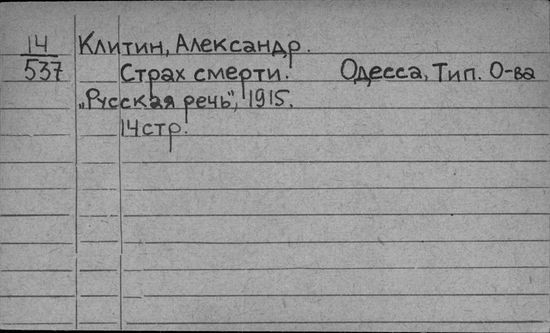 14 Клитин, Александр.
537 Страх смерти. Одесса, Тип. О-ва
„Русская речь", 1915.
14 стр.